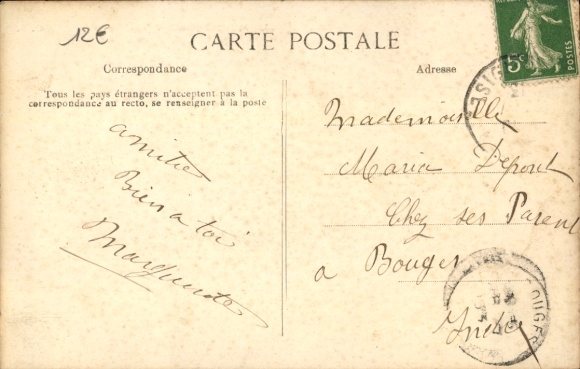 12€
CARTE POSTALE
Correspondance
Tous les pays étrangers n'acceptent pas la
correspondance au recto, se renseigner à la poste
Adresse
5c
amitié
Bien a toi
Marguerite
Mademoiselle
Maria
Chez ses Parent
a Bouges
Indre
OUGES